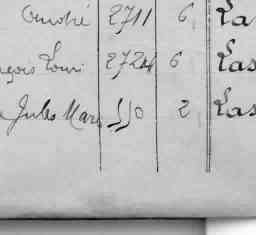 André 2711 6 La
nçois Louis 2724 6 Las
Jules Marc 110 2 Las